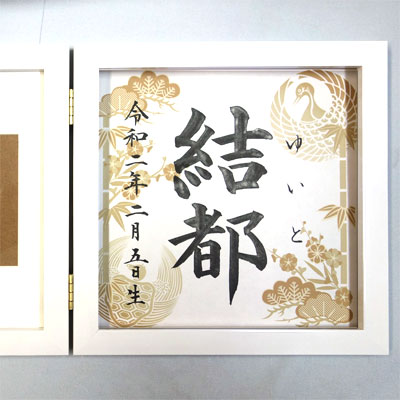 ゆいと
結都
令和二年二月五日生